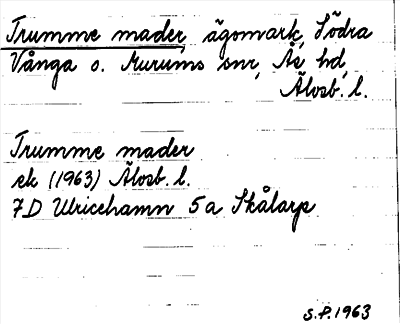 Trumme mader, ägomark, Södra
Vånga o. Murums snr, Ås hd,
Älvsb. l.
Trumme mader
ek (1963) Älvsb. l.
7D Ulricehamn 5a Skålarp
S.P. 1963